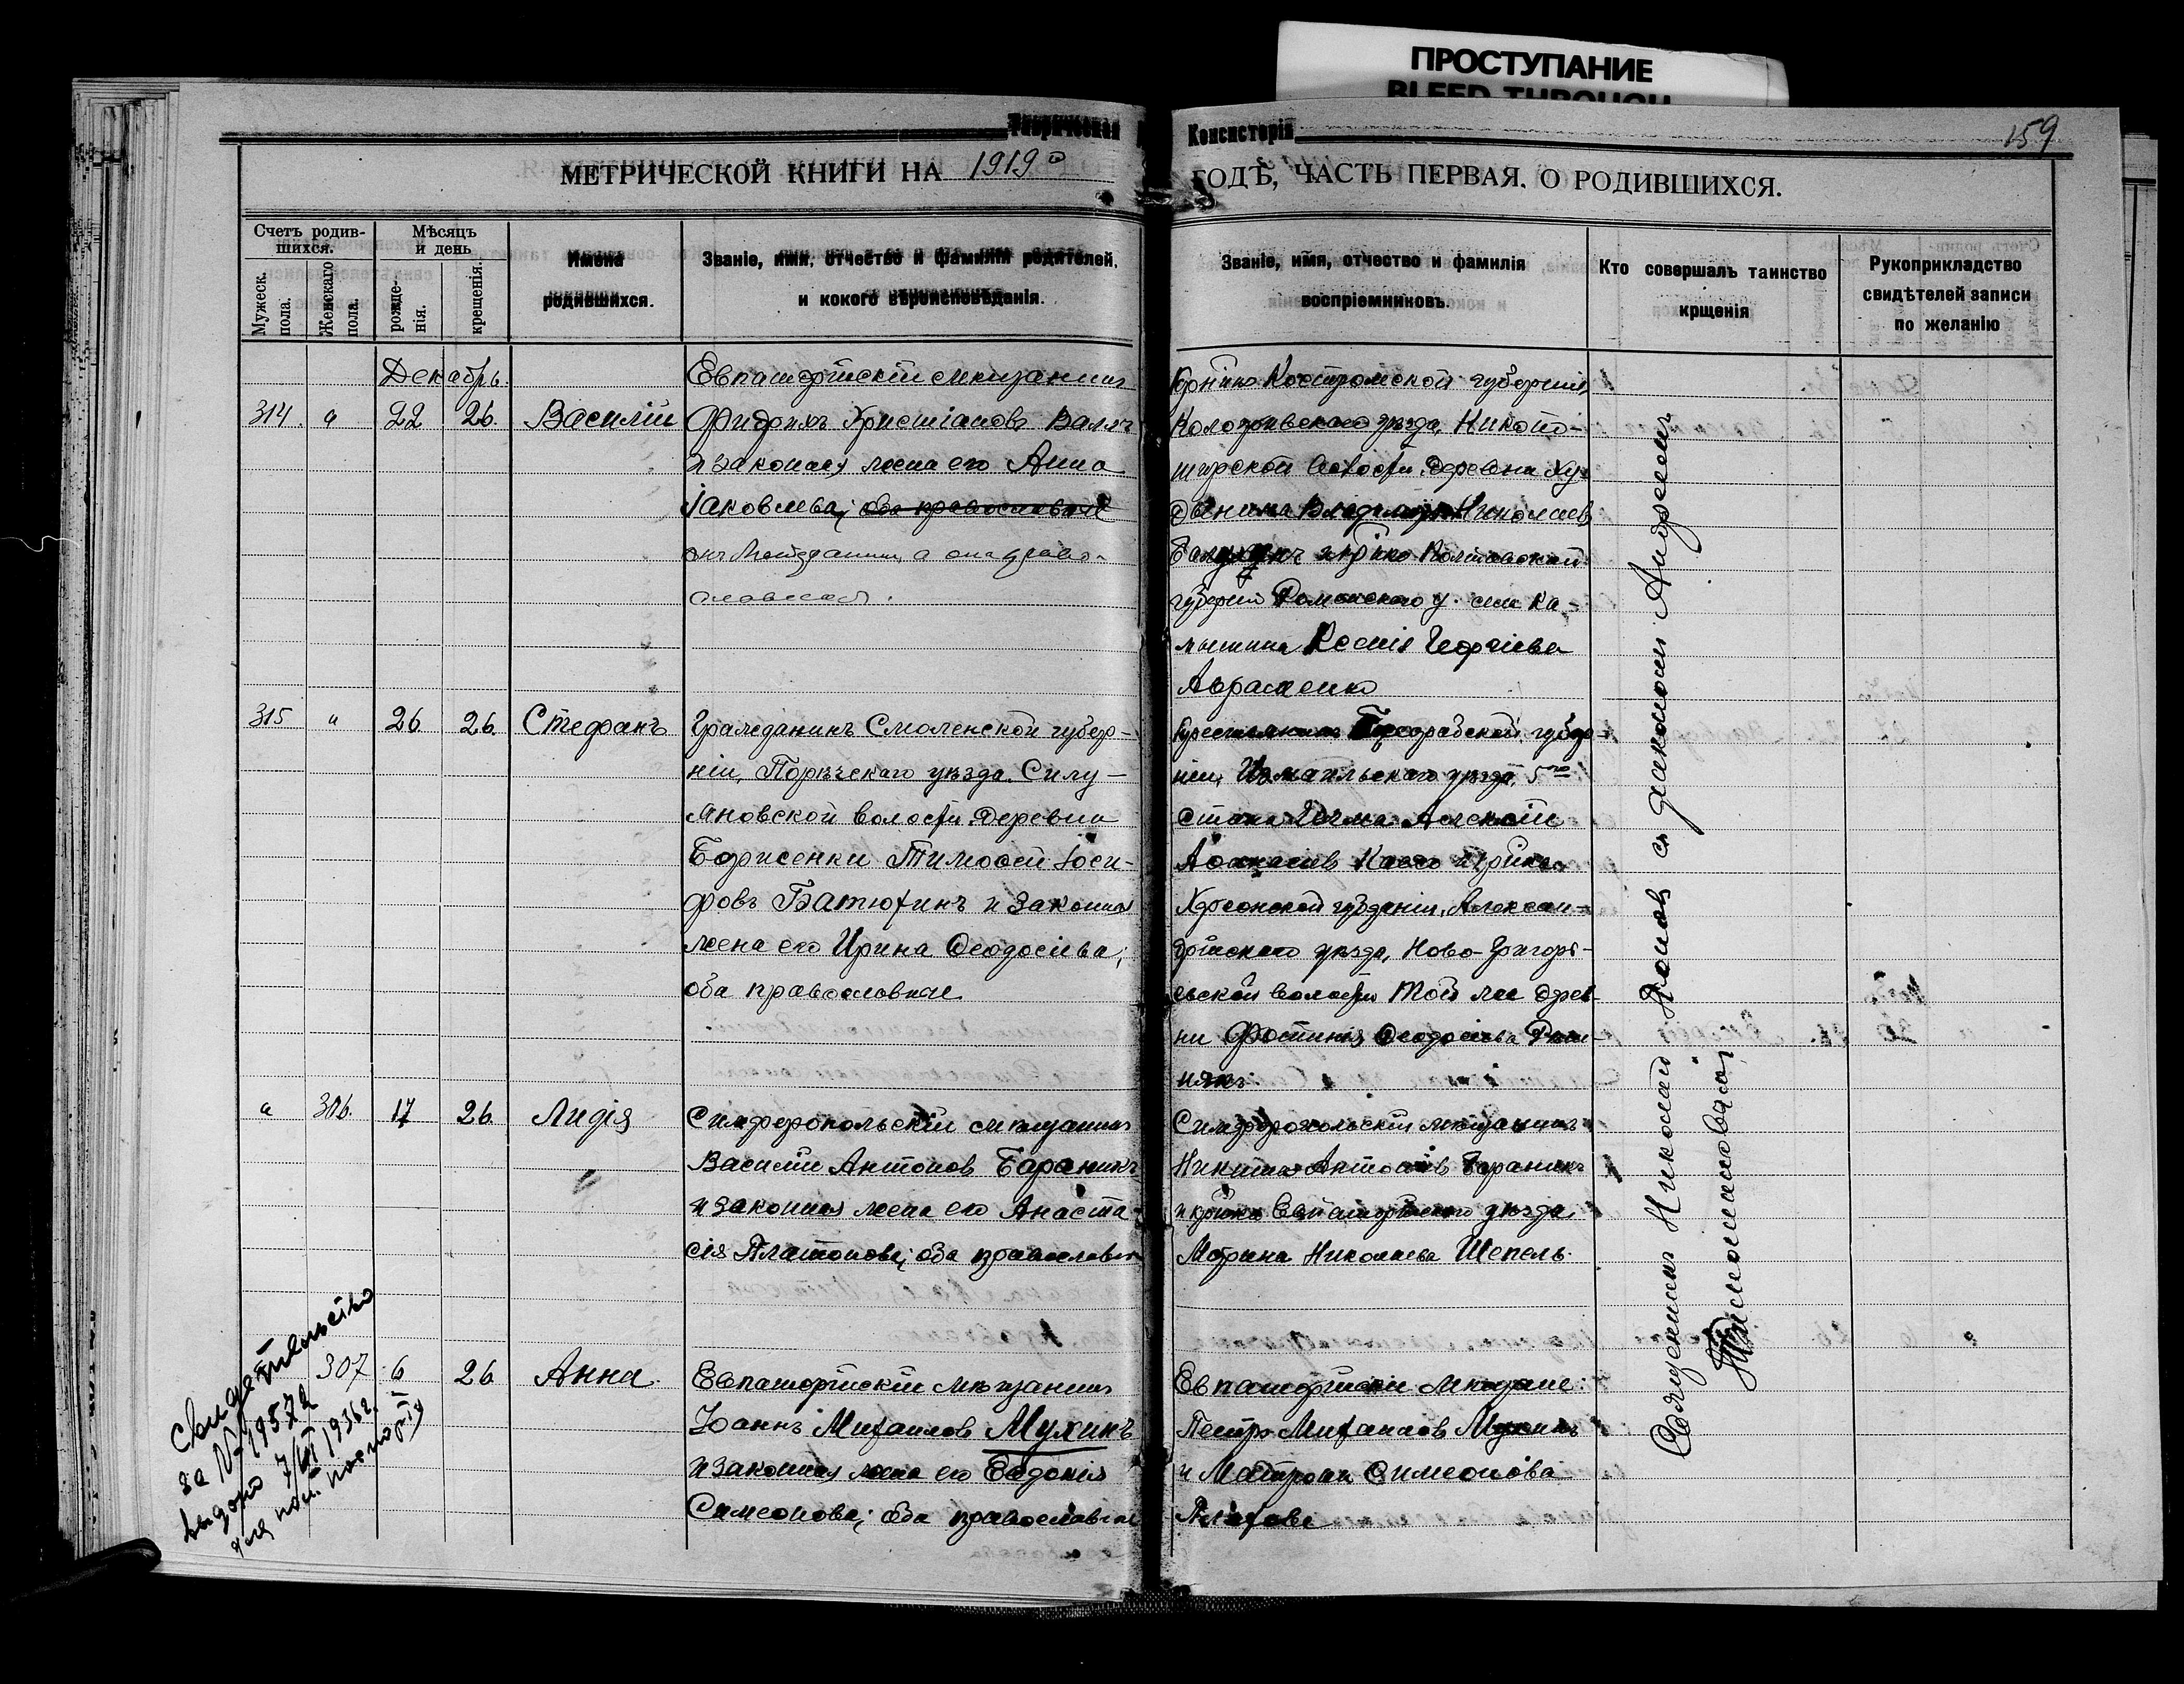 ПРОСТУПАНИЕ
BLEED THROUGH
Таврическая Консисторія
159
МЕТРИЧЕСКОЙ КНИГИ НА 1919 ГОДѢ, ЧАСТЬ ПЕРВАЯ, О РОДИВШИХСЯ.
Счетъ родив-
шихся.
Мужеск. пола.
Женскаго пола.
Мѣсяцъ
и день
рожде-
нія.
крещенія.
Имена
родившихся.
Званіе, имя, отчество и фамилія родителей,
и кокого вѣроисповѣданія.
Званіе, имя, отчество и фамилія
воспріемниковъ.
Кто совершалъ таинство
крщенія
Рукоприкладство
свидѣтелей записи
по желанію
Декабрь.
314. " 22 26. Василій
Евпаторійскій мѣщанинъ
Фидрихъ Христіановъ
и законная жена его Анна
Іаковлева; оба православные
а она право-
славная.
Костромской губерніи,
уѣзда,
волости деревни
Николаевъ
Полтавской
губерніи Роменскаго у. села
Ксенія Георгіева
Авраменко
315 " 26 26. Стефанъ
Гражданинъ Смоленской губер-
ніи, Порѣчскаго уѣзда, Силу-
яновской волости деревни
Борисенки Тимоѳей Іоси-
фовъ Батюхинъ и законная
жена его Ирина Ѳеодосіева;
оба православные
губер-
ніи, Измаильскаго уѣзда, 5го
Алексій
Херсонской губерніи, Алексан-
дрійскаго уѣзда, Ново-Григорь-
евской волости той же дерев-
ни Фотинія Ѳеодосіева
" 306. 17 26. Лидія
Симферопольскій мѣщанинъ
Василій Антоновъ Бараникъ
и законная жена его Анаста-
сія Платонова; оба православные
Симферопольскій мѣщанинъ
Никита Антоновъ Бараникъ
и Евпаторійскаго уѣзда
Марина Николаева Шепель.
307 6 26 Анна.
Евпаторійскій мѣщанинъ
Іоаннъ Михаиловъ Мухинъ
и законная жена его Евдокія
Симеонова; оба православные
Евпаторійскіе мѣщане:
Петръ Михаиловъ Мухинъ
и Матрона Симеонова
Священникъ Николай Поповъ съ діакономъ Андреемъ
Свидетельство
за № 19572
выдано 7/VI 1936 г.
для пол. паспорта